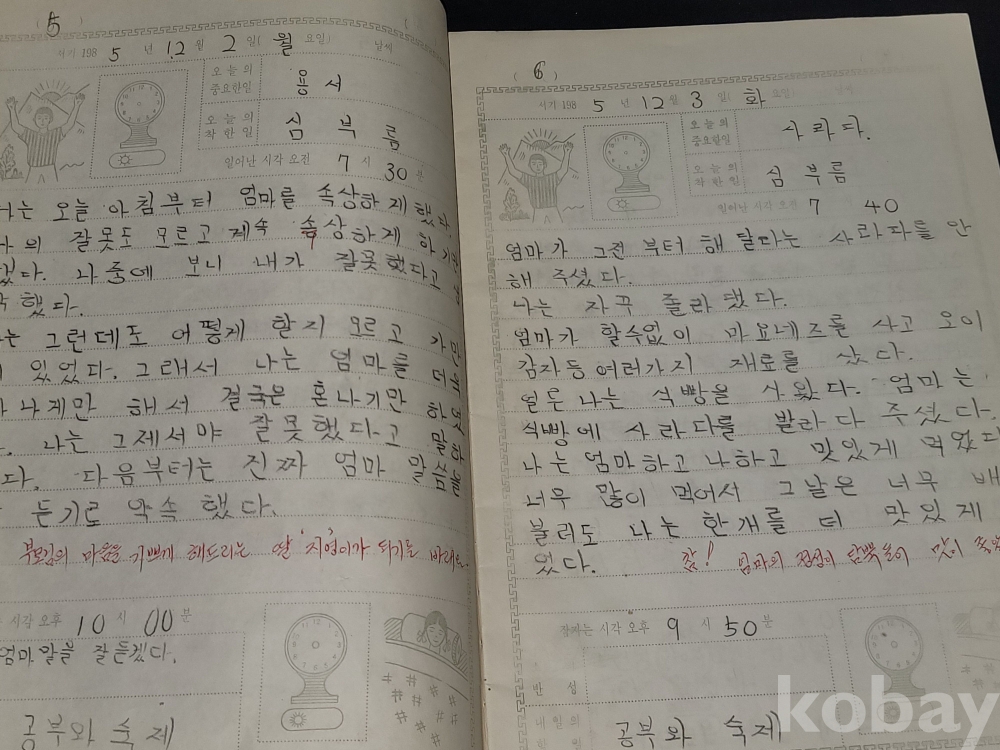 ( 5 )
서기 198 5 년 12 월 2 일( 월 요일) 날씨
오늘의
중요한일
용서
오늘의
착한일
심부름
일어난 시각 오전 7 시 30 분
나는 오늘 아침부터 엄마를 속상하게 했다
의 잘못도 모르고 계속 속상하게 하기만
했다. 나중에 보니 내가 잘못했다고
했다.
는 그런데도 어떻게 할지 모르고 가만
있었다. 그래서 나는 엄마를 더욱
나게만 해서 결국은 혼나기만 하
나는 그제서야 잘못했다고 말
다. 다음부터는 진짜 엄마 말씀을
듣기로 약속 했다.
부모님의 마음을 기쁘게 해드리는 딸 지영이가 되기를 바래요
시각 오후 10 시 00 분
엄마말을 잘듣겠다.
공부와 숙제
( 6 )
서기 198 5 년 12 월 3 일( 화 요일) 날씨
오늘의
중요한일
사라다.
오늘의
착한일
심부름
일어난 시각 오전 7 40
엄마가 그전 부터 해 달다는 사라다를 안
해 주셨다.
나는 자꾸 졸라 댔다.
엄마가 할수없이 마요네즈를 사고 오이
감자등 여러가지 재료를 샀다.
얼른 나는 식빵을 사왔다. 엄마는
식빵에 사라다를 발라다 주셨다.
나는 엄마하고 나하고 맛있게 먹었다
너무 많이 먹어서 그날은 너무 배
불러도 나는 한개를 더 맛있게
었다. 참! 엄마의 정성이 담뿍 들어 맛이
잠자는 시각 오후 9 시 50 분
반성
내일의
공부와 숙제
kobay